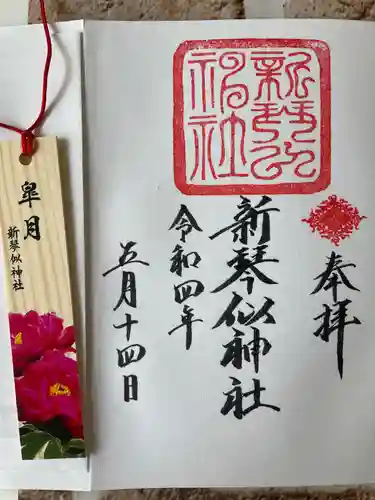 奉拝
新琴似神社
令和四年
五月十四日
新琴似神社
皐月
新琴似神社